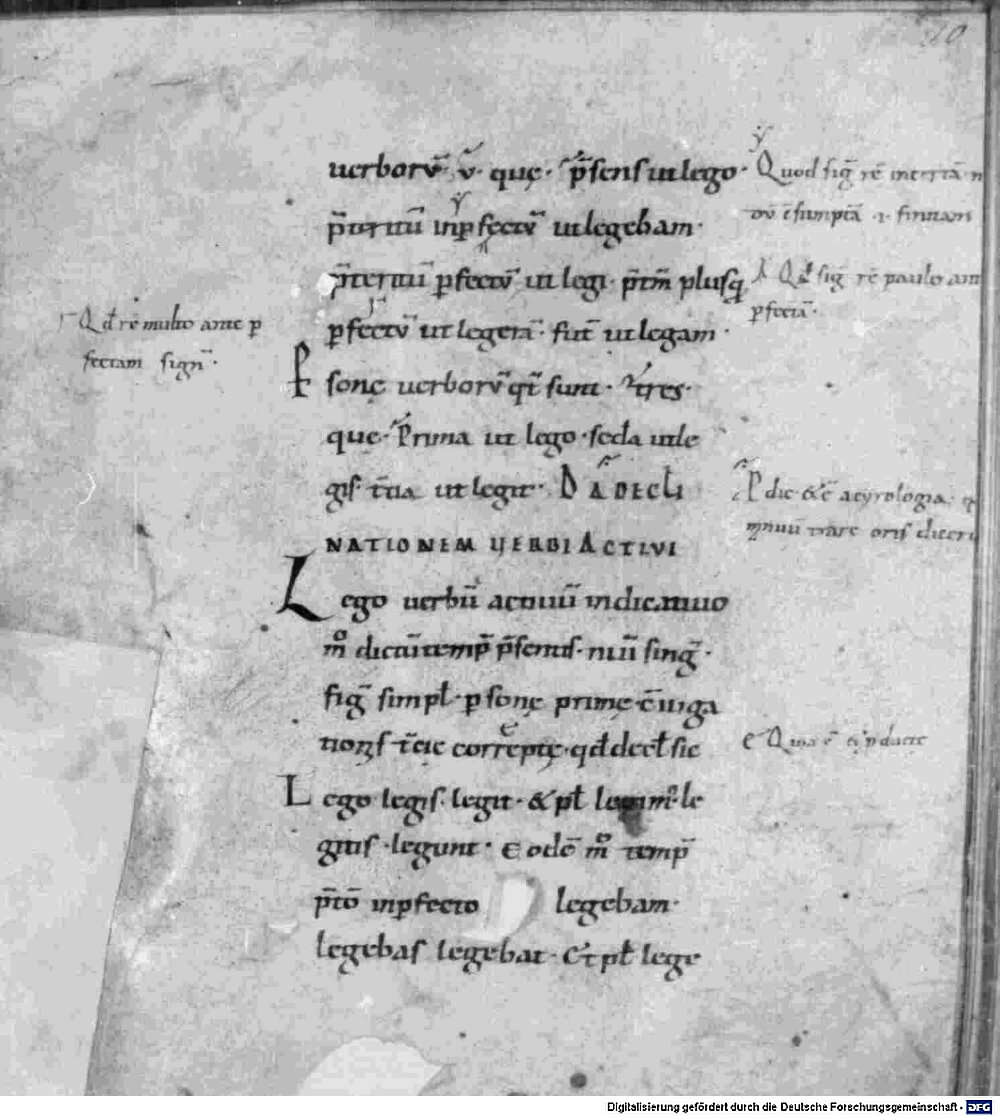 10
uerborū· v̄· quę· p̄sens ut lego·
p̄teritū inꝑfectū ut legebam·
p̄teritū ꝑfectū ut legi· p̄tm̄ plusq̄
ꝑfectū ut legerā· fut̄ ut legam·
Ꝑ
sonę uerborū qt̄ sunt· tres·
quę· Prima ut lego· sc̄da ut le
gis t̄tia ut legit· DA DECLI
NATIONEM VERBI ACTIVI
Lego uerbū actiuū indicatiuo
mº dictū temp̄ p̄sentis· nuū sinḡ·
fiḡ simpl̄· ꝑsonę primę c̄iuga
tionis t̄cię correptę· qđ decl̄ sic
Lego legis· legit· & pl̄ legim᷒· le
gitis· legunt· Eodē mº temp̄
p̄tō inꝑfecto legebam·
legebas legebat· Et pl̄ lege
Quod siḡ rē incertā n
Qđ siḡ rē paulo ant
ꝑfectā·
Qđ rē multo ante ꝑ
fectam sign̄·
P dic &ē acyrologia·
oris
Digitalisierung gefördert durch die Deutsche Forschungsgemeinschaft - DFG